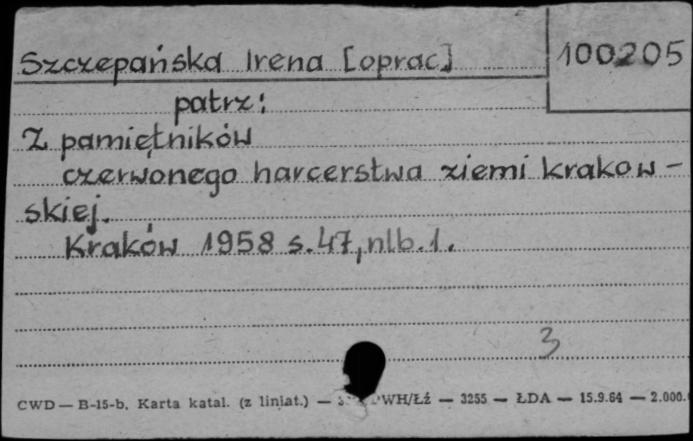 Szczepańska Irena [oprac]
100205
patrz:
Z pamiętników
czerwonego harcerstwa ziemi krakow-
skiej.
Kraków 1958 s.47, nlb.1.
3
CWD — B-15-b. Karta katal. (z liniat.) — PWH/Łź — 3255 — ŁDA — 15.9.64 — 2.000.